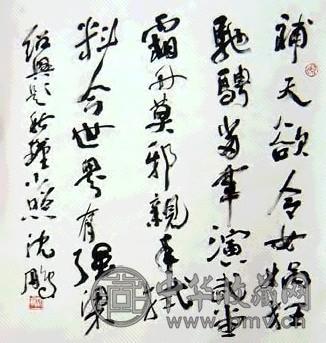 補天欲令女娲狂
馳騁當羣演武堂
霜刃莫邪親手執
料今世界有强梁
紹興题秋瑾小照 沈鹏
中华收藏网